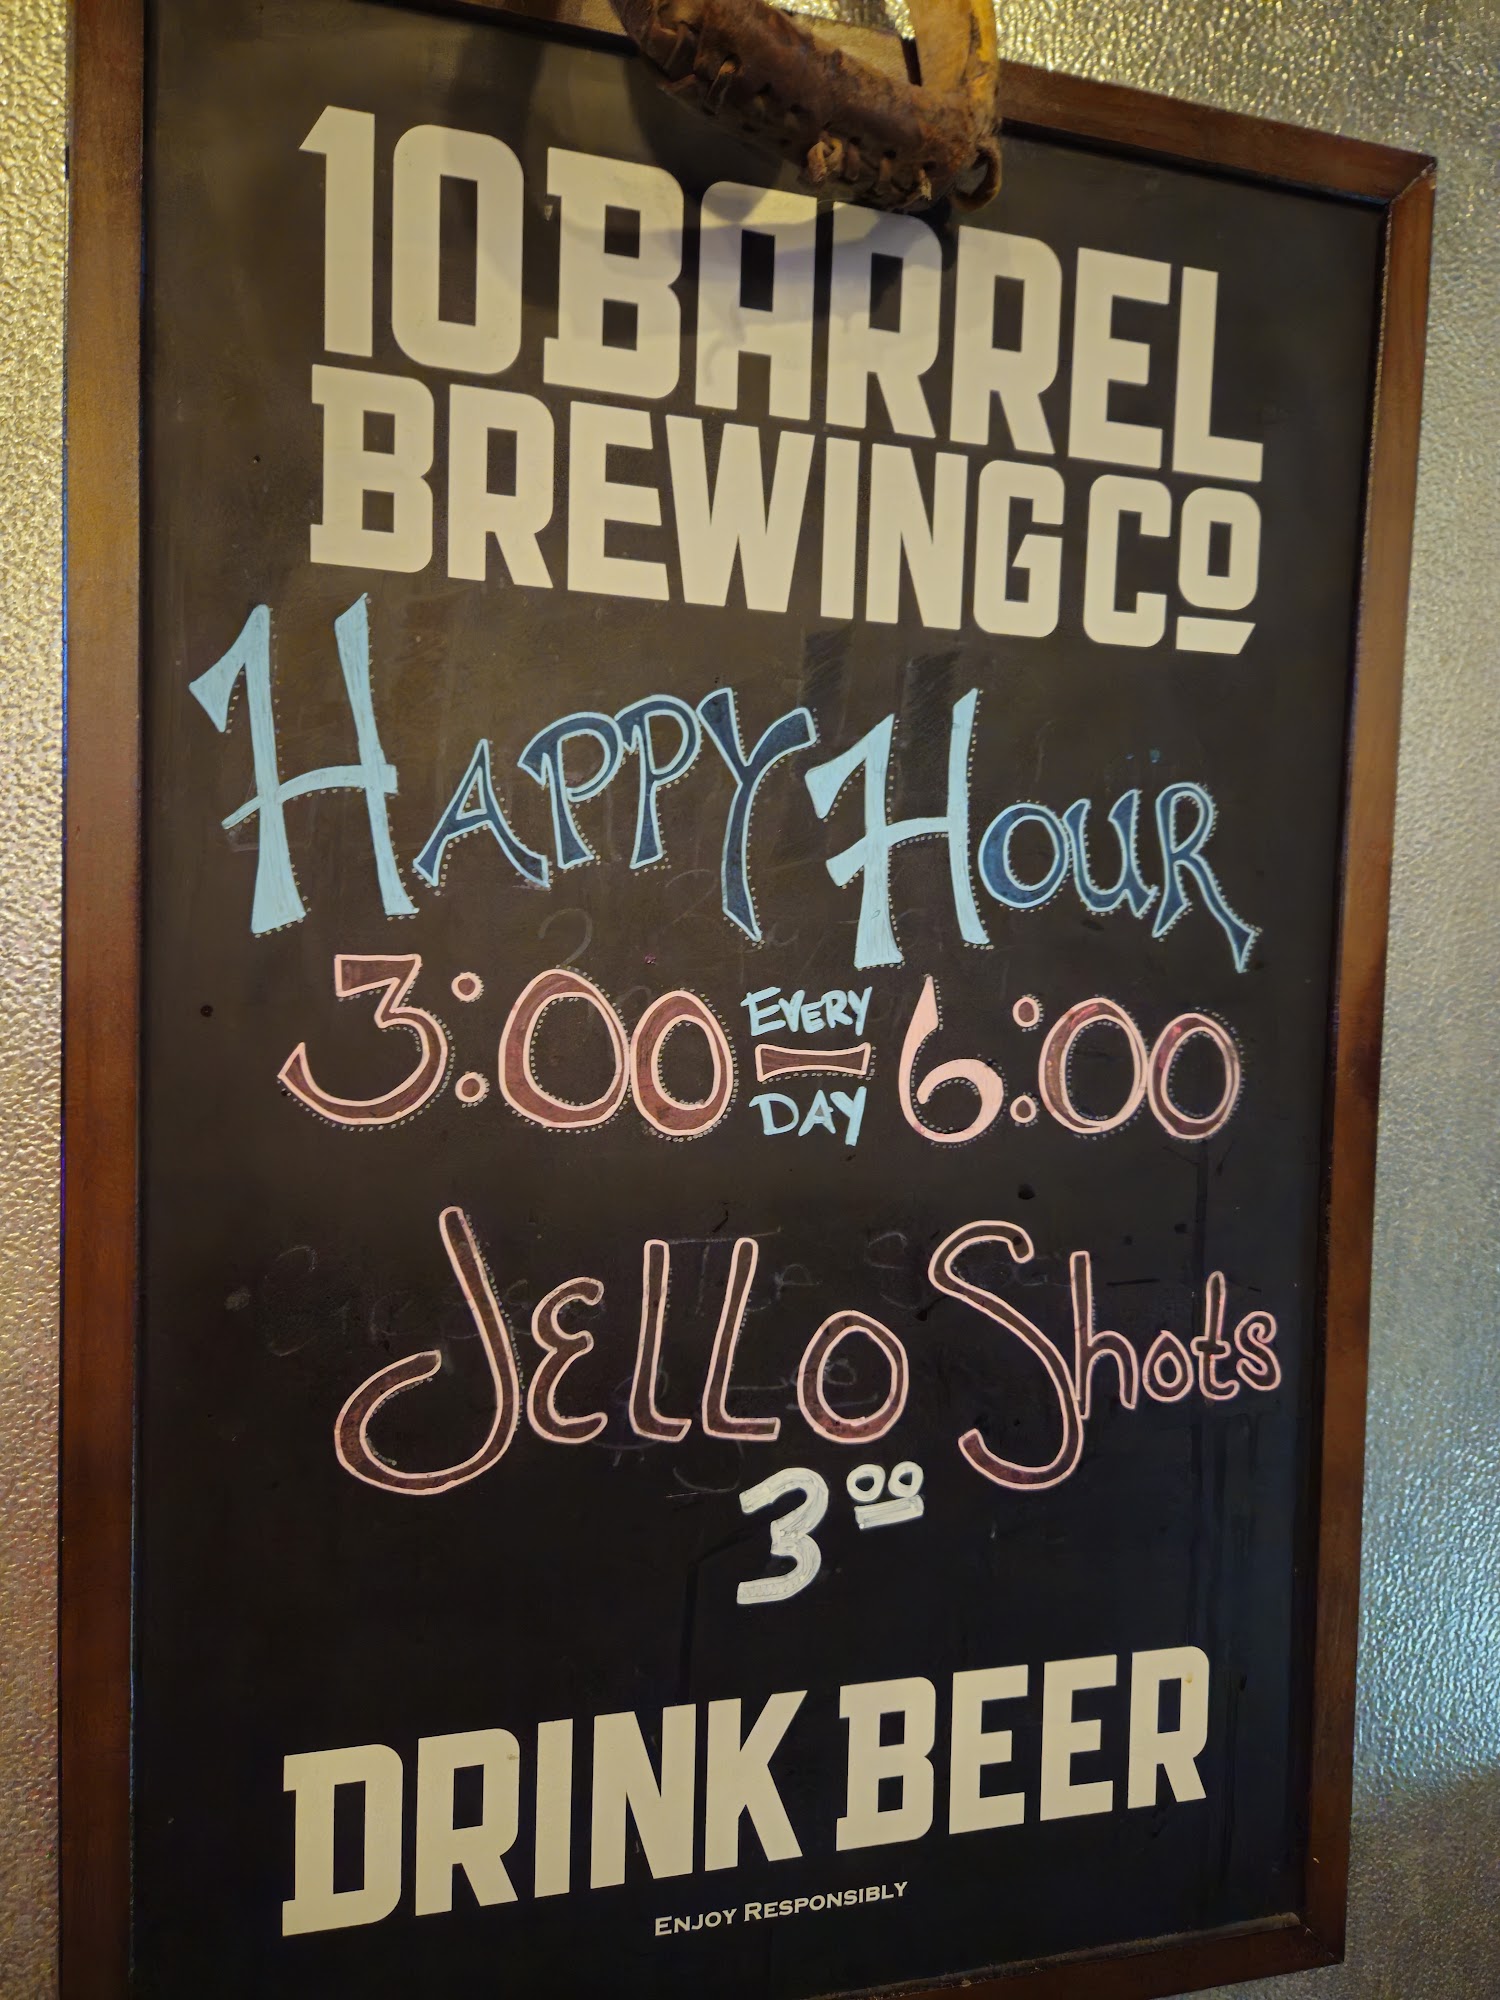 10 BARREL
BREWING CO
HAPPY HOUR
3:00 EVERY - DAY 6:00
JELLO Shots
3 00
DRINK BEER
ENJOY RESPONSIBLY